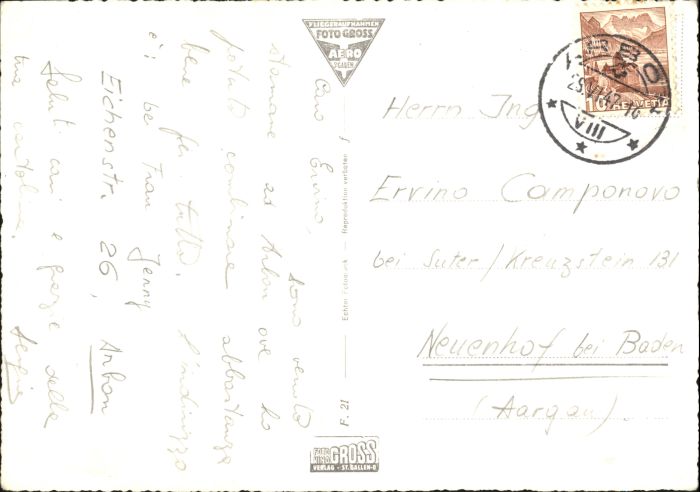 Caro Ervino,
sono venuto
stamane ad Arbon ove ho
potuto combinare abbastanza
bene per tutto. L'indirizzo
è: bei Frau Jenny
Eichenstr. 26, Arbon
Saluti cari e grazie della
tua cartolina. Sergio
FLIEGERAUFNAHMEN
FOTO GROSS
AERO
ST. GALLEN
F. 21 — Echte Fotografik — Reproduktion verboten
FOTO GROSS
VERLAG - ST. GALLEN-O
HELVETIA
10
ARBON
VIII
Herrn Ing.
Ervino Camponovo
bei Suter / Kreuzstein 131
Neuenhof bei Baden
(Aargau)